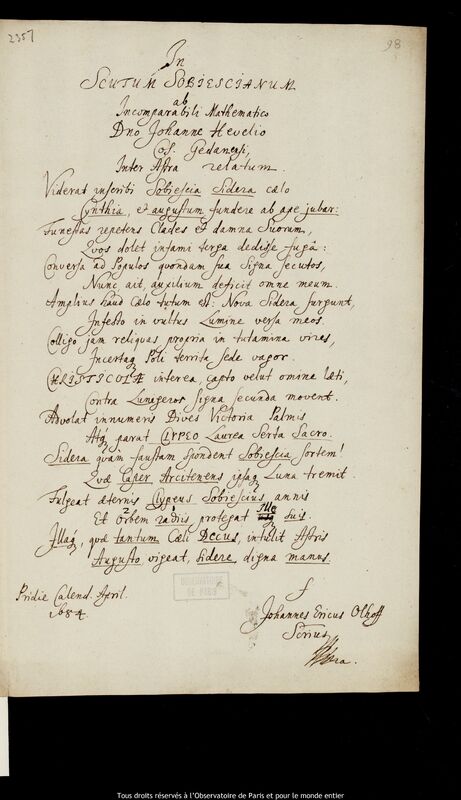 2357
98
In
SCUTUM SOBIESCIANUM
ab
Incomparabili Mathematico
Dno Johanne Hevelio
Cos. Gedanensi,
Inter Astra relatum.
Viderat inscribi Sobiescia Sidera cælo
Cynthia, et augustum fundere ab axe jubar:
Funestas repetens Clades et damna Suorum,
Quos dolet infami terga dedisse fugâ:
Conversa ad Populos quondam sua Signa secutos,
Nunc, ait, auxilium deficit omne meum.
Amplius haud Cælo tutum est: Nova Sidera surgunt,
Infesto in vultus Lumine versa meos.
Colligo jam reliquas propria in tutamina vires,
Incertaq Poli territa sede vagor.
CHRISTICOLÆ interea, capto velut omina læti,
Contra Lunigeros signa secunda movent.
Advolat innumeris Dives Victoria Palmis
Atq parat CLYPEO Laurea Serta Sacro.
Sidera quàm faustam spondent Sobiescia Sortem!
Quæ Caper Arcitenens ipsaq Luna tremit.
Fulgeat æternis Clypeus Sobiescius annis
Et orbem radiis protegat Ille suis.
Illaq, quæ tantum Cæli Decus, intulit Astris
Augusto vigeat, sidere digna manus.
Pridie Calend. April.
1684.
f
Johannes Ericus Olhoff
OBSERVATOIRE
DE PARIS
Tous droits réservés à l'Observatoire de Paris et pour le monde entier